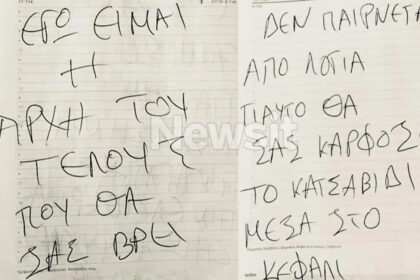 ΕΓΩ ΕΙΜΑΙ
Η
ΑΡΧΗ ΤΟΥ
ΤΕΛΟΥΣ
ΠΟΥ ΘΑ
ΣΑΣ ΒΡΕΙ
ΔΕΝ ΠΑΙΡΝΕΤΑ
ΑΠΟ ΛΟΓΙΑ
ΓΙΑΥΤΟ ΘΑ
ΣΑΣ ΚΑΡΦΟΣ
ΤΟ ΚΑΤΣΑΒΙΔΙ
ΜΕΣΑ ΣΤΟ
ΚΕΦΑΛΙ
Newsit